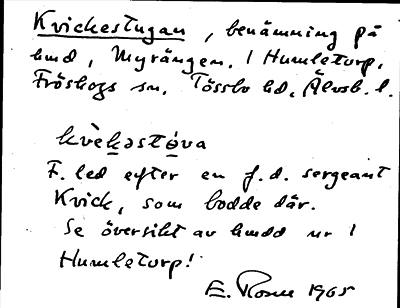 Kvickestugan, benämning på
hmd, Myrängen, 1 Humletorp,
Fröskogs sn, Tössbo hd, Älvsb. l.
kvèkəstówa
F. led efter en f.d. sergeant
Kvick, som bodde där.
Se översikt av hmdd nr 1
Humletorp!
E. Rosen 1965